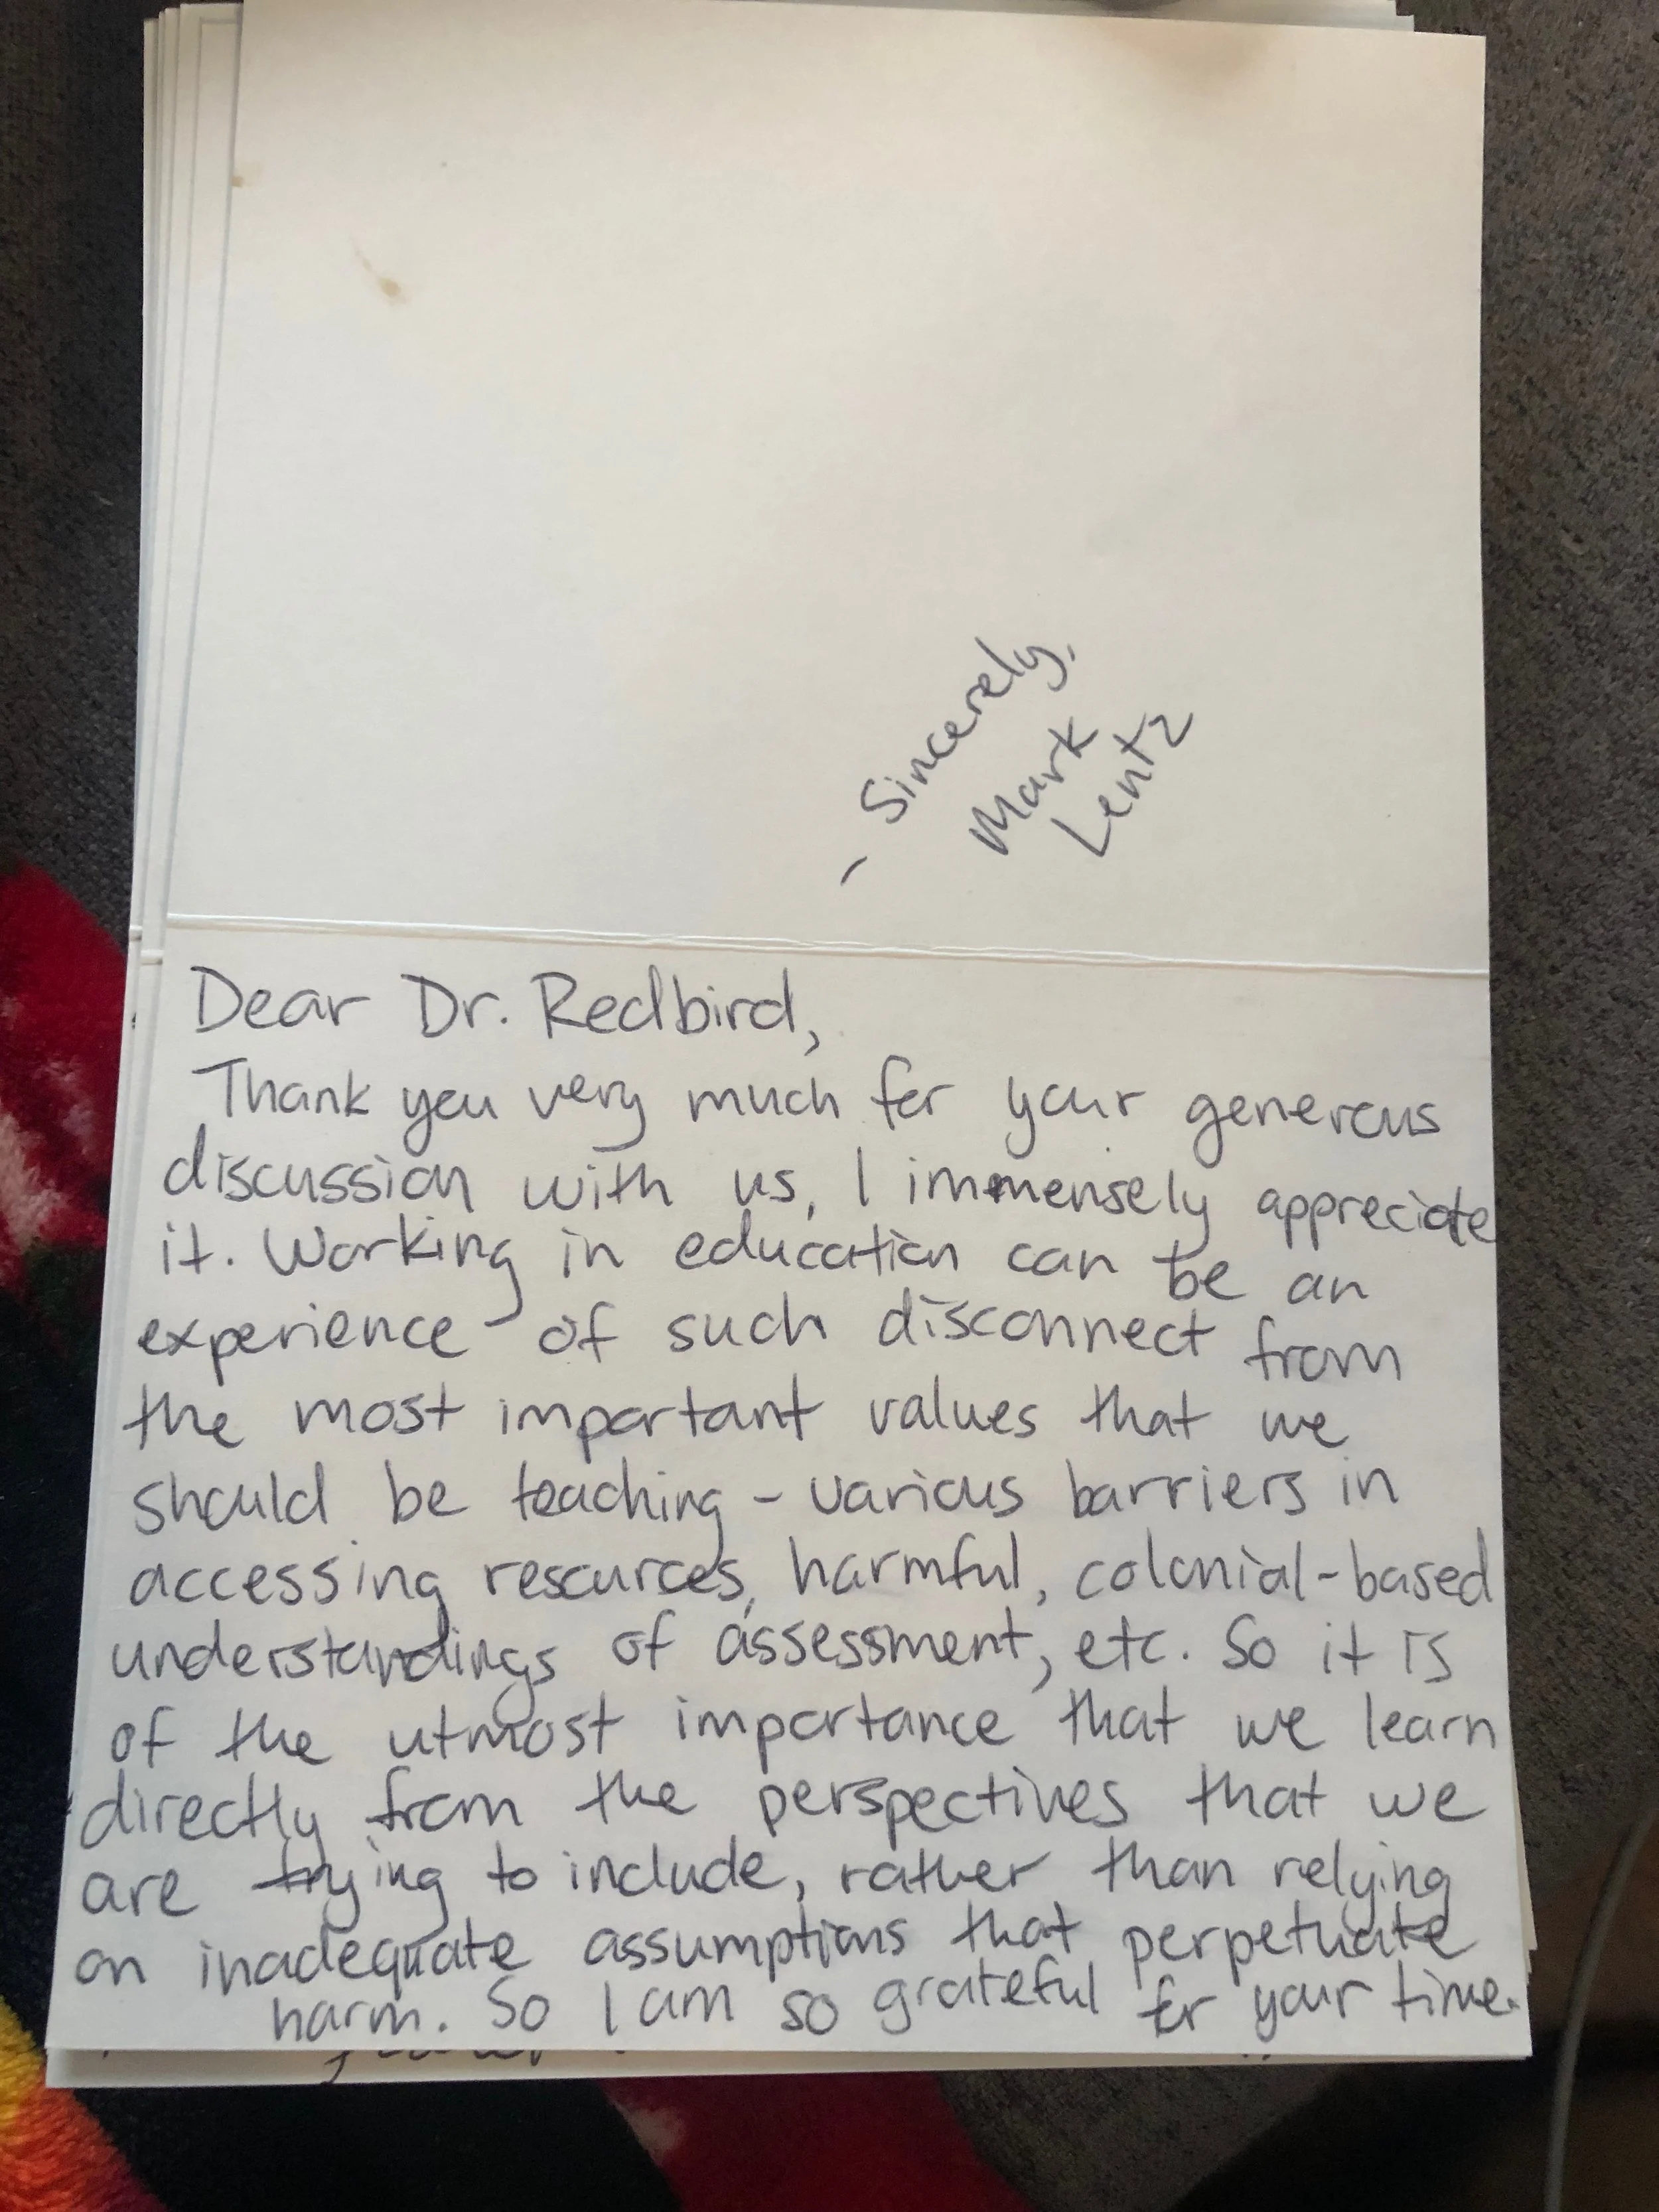 Dear Dr. Redbird,
Thank you very much for your generous
discussion with us, I immensely appreciate
it. Working in education can be an
experience of such disconnect from
the most important values that we
should be teaching - various barriers in
accessing resources, harmful, colonial-based
understandings of assessment, etc. So it is
of the utmost importance that we learn
directly from the perspectives that we
are trying to include, rather than relying
on inadequate assumptions that perpetuate
harm. So I am so grateful for your time.
- Sincerely,
Mark
Lentz